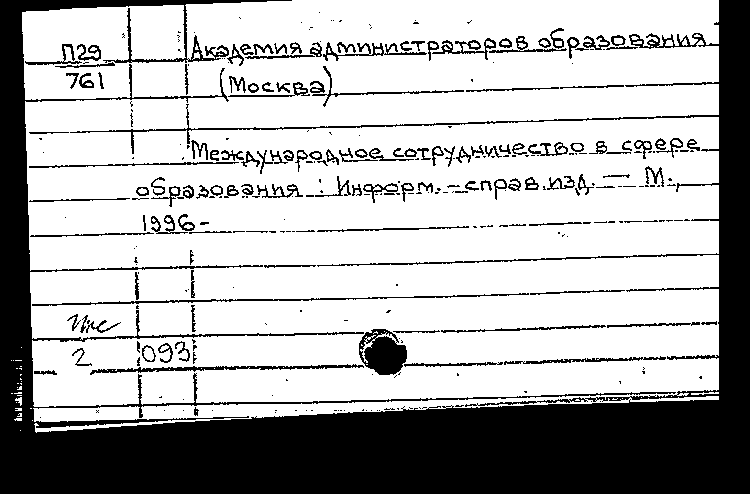 П29 Академия администраторов образования
761 (Москва).
Международное сотрудничество в сфере
образования : Информ.-справ.изд. — М.,
1996-
2 093